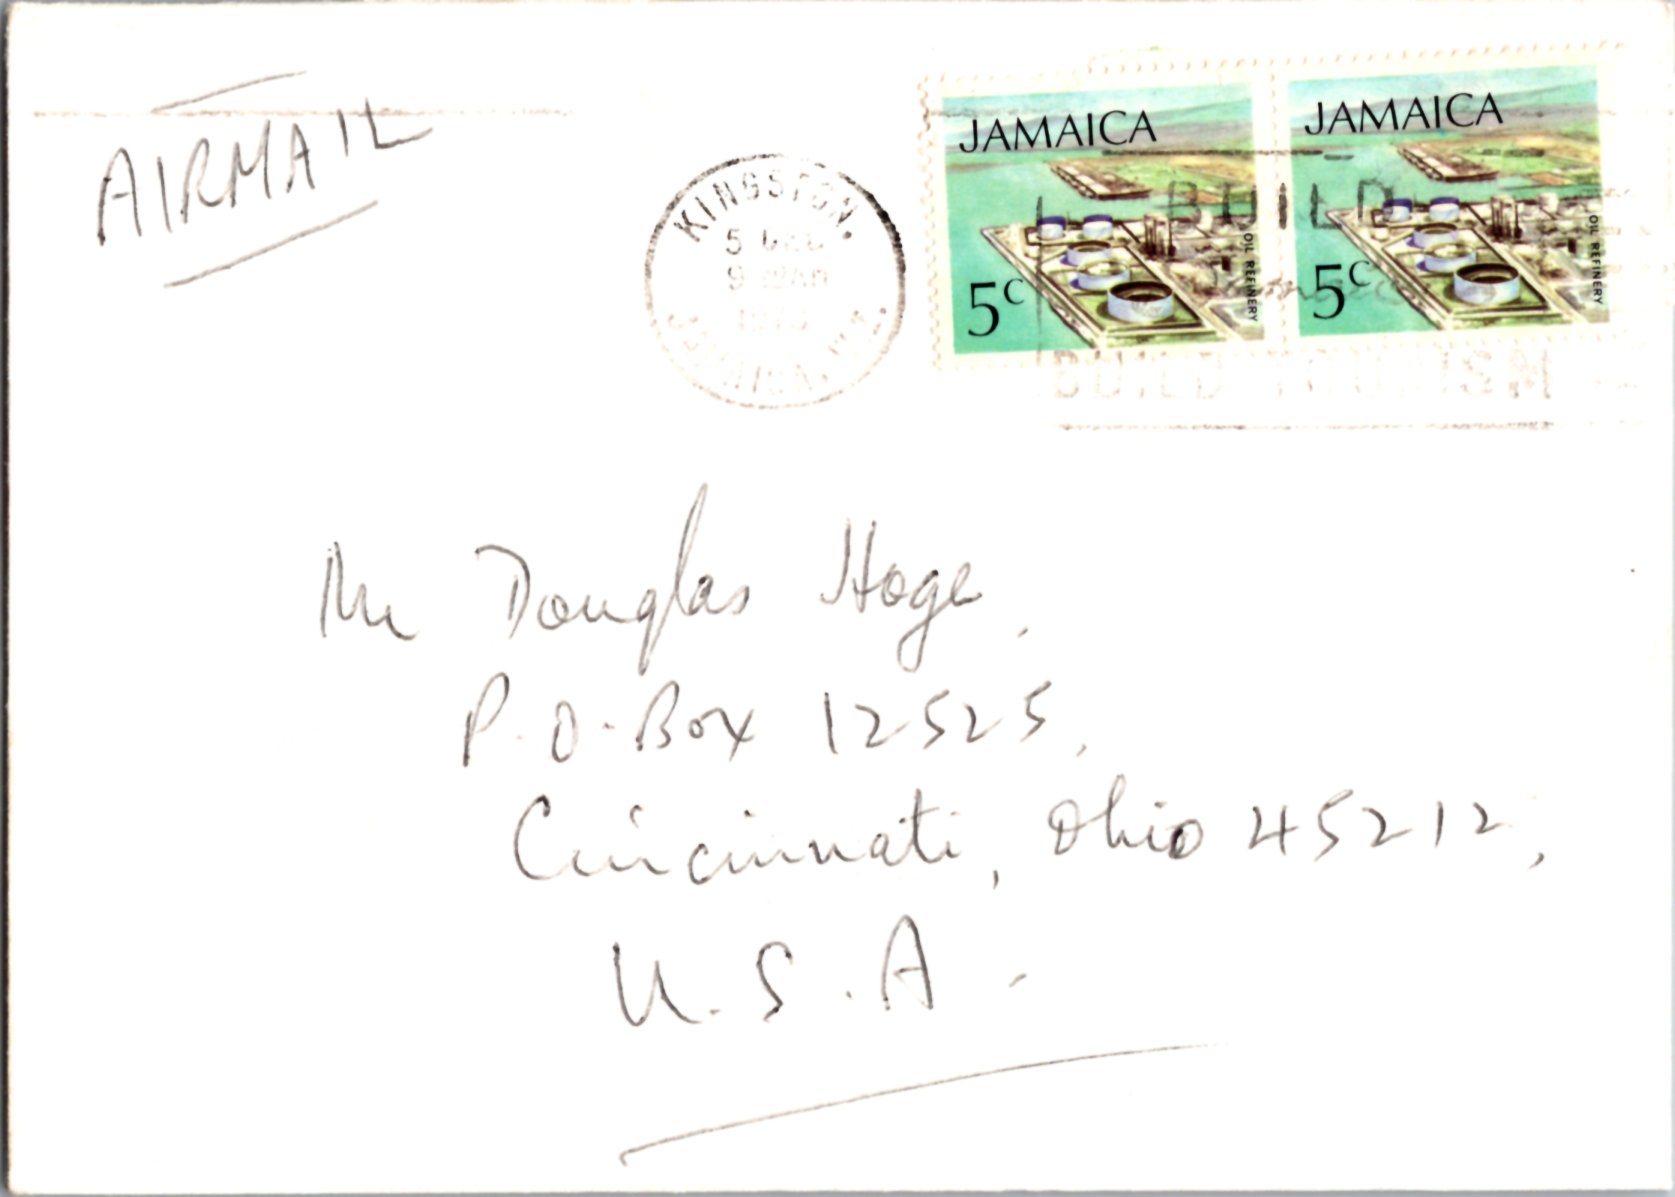 AIRMAIL
KINGSTON.
5
9
JAMAICA
5c
OIL REFINERY
JAMAICA
5c
OIL REFINERY
BUILD
BUILD TOURISM
Mr Douglas Hoge,
P.O. Box 12525,
Cincinnati, Ohio 45212,
U.S.A.